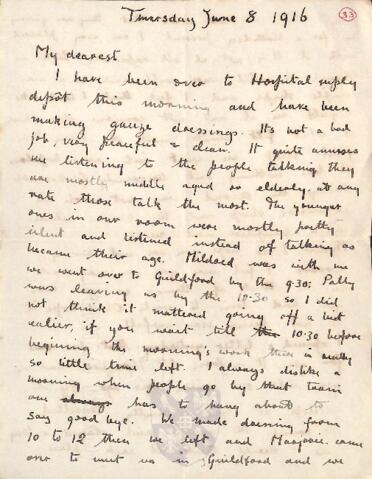 Thursday June 8 1916
33
My dearest
I have been over to Hospital supply
depôt this morning and have been
making gauze dressings. Its not a bad
job, very peaceful & clean. It quite amuses
me listening to the people talking they
are mostly middle aged or elderly, at any
rate those talk the most. The younger
ones in our room were mostly pretty
silent and listened instead of talking as
became their age. Mildred was with me
we went over to Guildford by the 9:30; Polly
was leaving us by the 10-30 so I did
not think it mattered going off a bit
earlier, if you wait till 10.30 before
beginning the morning's work there is really
so little time left. I always dislike a
morning when people go by that train
one has to hang about to
say good bye. We made dressing from
10 to 12 then we left and Marjorie came
over to meet us in Guildford and we